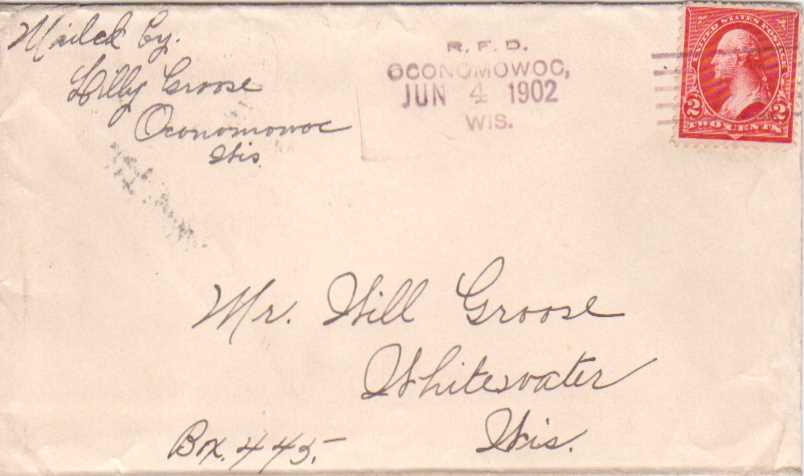 Mailed by.
Lilly Groose
Oconomowoc
Wis.
R. F. D.
OCONOMOWOC,
JUN 4 1902
WIS.
UNITED STATES POSTAGE
2 2
TWO CENTS
Mr. Will Groose
Whitewater
Wis.
Box. 445.